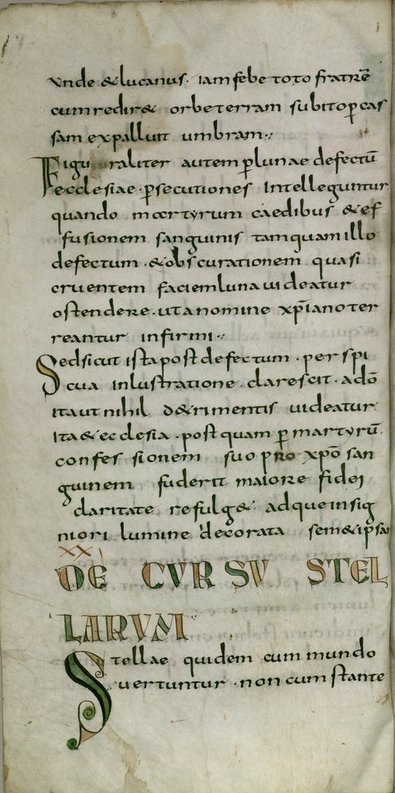 vnde & lucanus. iam febe toto fratrē
cum redir& orbe terram subito percas
sam expalluit umbram.
Figuraliter autem p lunae defectū
ecclesiae persecutiones intelleguntur
quando martyrum caedibus & ef
fusionem sanguinis tamquam illo
defectum . & obscurationem quasi
cruentem faciem luna uideatur
ostendere . ut a nomine xp̄iano ter
reantur infirmi.
Sed sicut ista post defectum . perspi
cua inlustratione . clarescit . adō
ita ut nihil d&rimentis uideatur
ita & ecclesia . postquam p martyrū
confessionem suo pro xp̄o san
guinem fuderit maiore fidei
claritate refulg& . adque insig
niori lumine decorata sem& ipsā
xxi
DE CVRSV STEL
LARVM
Stellae quidem cum mundo
uertuntur . non cum stante